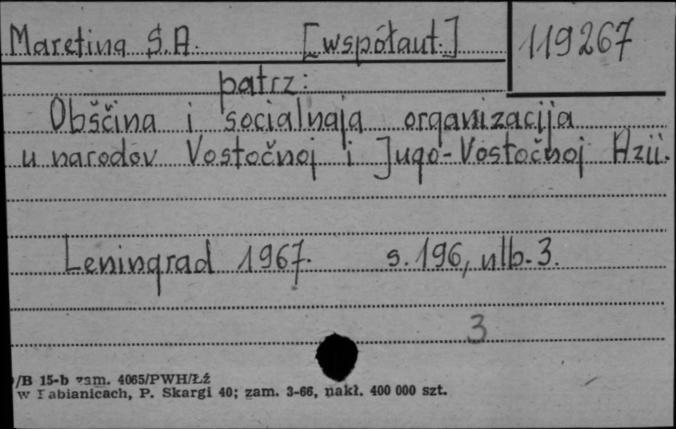 Maretina S.A. [współaut.] 119267
patrz:
Obščina i socialnaja organizacija
u narodov Vostočnoj i Jugo-Vostočnoj Azii.
Leningrad 1967. s. 196, nlb. 3.
3
/B 15-b zam. 4065/PWH/Łź
w Pabianicach, P. Skargi 40; zam. 3-66, nakł. 400 000 szt.